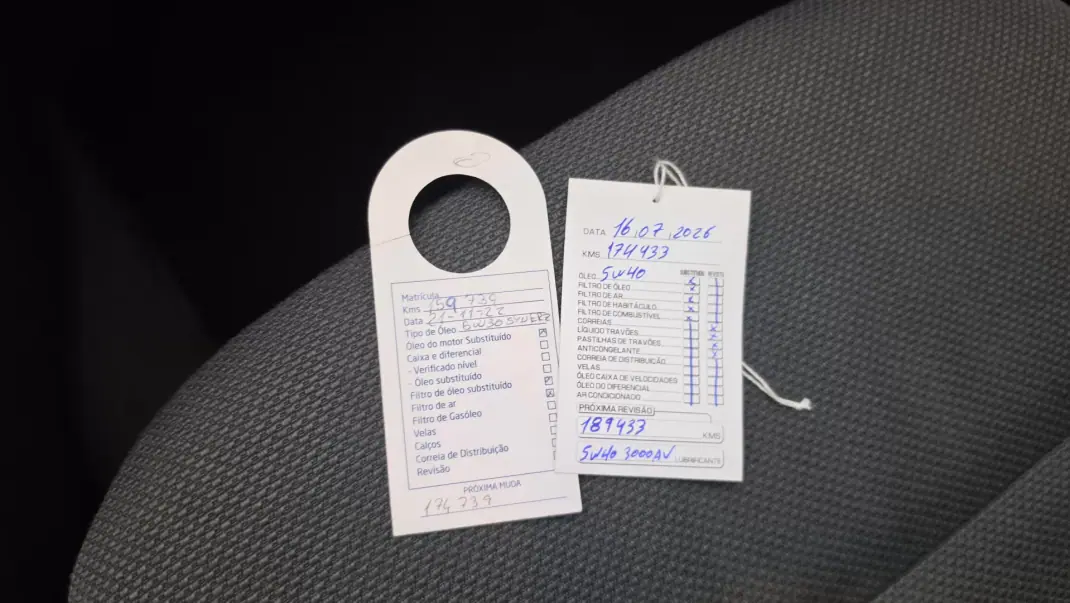 Matrícula
Kms 159 739
Data 21-11-22
Tipo de Óleo 5W30
Óleo do motor Substituído
Caixa e diferencial
- Verificado nível
- Óleo substituído
Filtro de óleo substituído
Filtro de ar
Filtro de Gasóleo
Velas
Calços
Correia de Distribuição
Revisão
PRÓXIMA MUDA
174 739
DATA 16,07,2026
KMS 174433
SUBSTITUÍDO REVISTO
ÓLEO 5W40
FILTRO DE ÓLEO
FILTRO DE AR
FILTRO DE HABITÁCULO
FILTRO DE COMBUSTÍVEL
CORREIAS
LÍQUIDO TRAVÕES
PASTILHAS DE TRAVÕES
ANTICONGELANTE
CORREIA DE DISTRIBUIÇÃO
VELAS
ÓLEO CAIXA DE VELOCIDADES
ÓLEO DO DIFERENCIAL
AR CONDICIONADO
PRÓXIMA REVISÃO
189433 KMS
5W40 3000AV LUBRIFICANTE